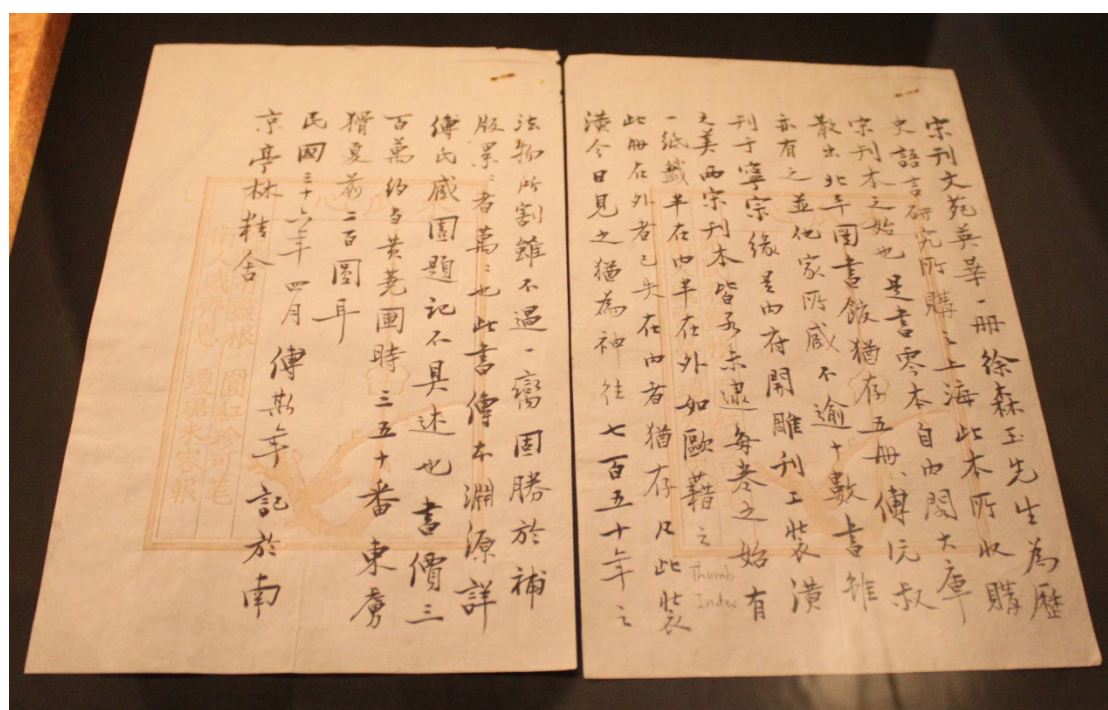 宋刊文苑英華一冊徐森玉先生為歷
史語言研究所購之上海此本所收購
宋刊本之始也是書零本自內閣大庫
散出北平圖書館猶存五冊、傅沅叔
亦有之並他家所藏不逾十數書雖
刊于寧宗緣是內府開雕刊工裝潢
之美兩宋刊本皆未逮每卷之始有
一紙籤半在內半在外如歐藉之 Thumb Index
此冊在外者已失在內者猶存凡此裝
潢今日見之猶為神往七百五十年之
法物所割雖不過一臠固勝於補
版累〻者萬〻也此書傳本淵源詳
傅氏藏園題記不具述也書價三
百萬約當黃蕘圃時三五十番東虜
猾夏前二百圓耳
民國三十六年四月傅斯年記於南
京亭林精舍